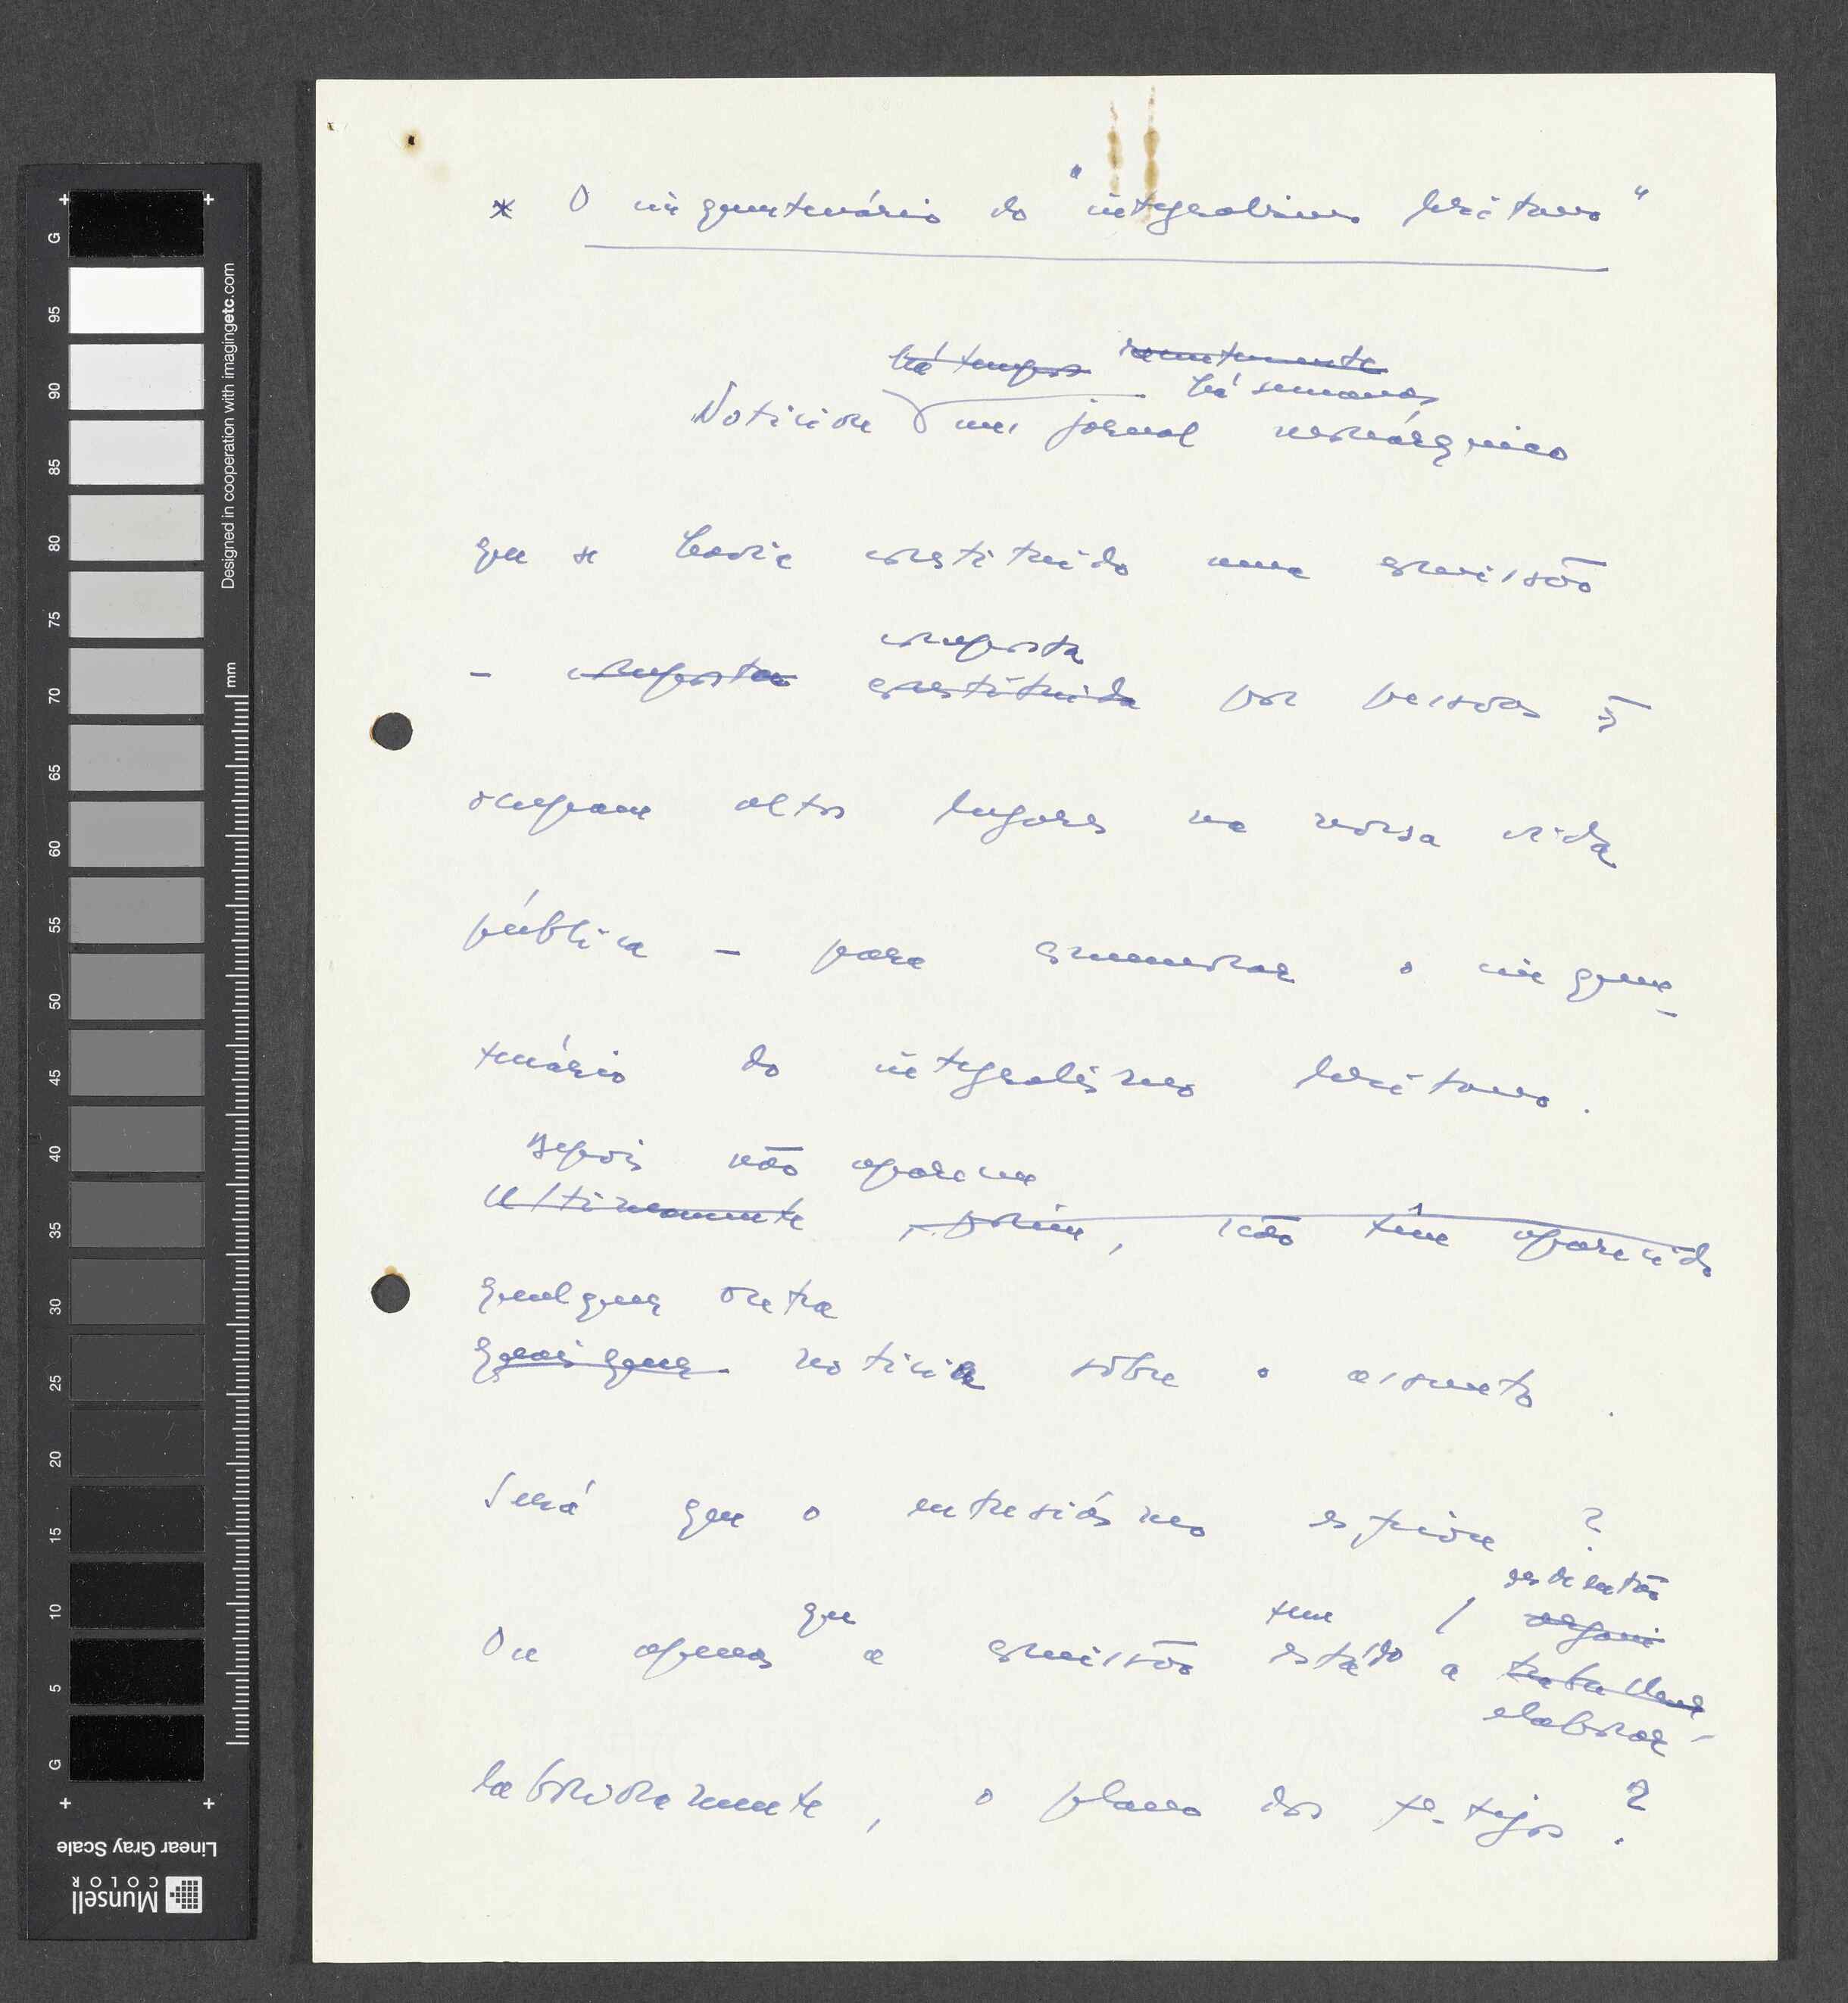 * O cinquentenário do "integralismo lusitano"
há tempos recentemente
há semanas
Noticiou um jornal monárquico
que se havia constituido uma comissão
composta
- composta constituida por pessoas q̃
ocupam altos lugares na nossa vida
pública - para comemorar o cinquen-
tenário do integralismo lusitano.
Depois não apareceu
Ultimamente, porém, não têm aparecido
qualquer outra
quaisquer noticia sôbre o assunto.
Será que o entusiásmo esfriou?
que tem
Ou apenas a comissão está a trabalhar
elaborar
laboriosamente, o plano dos festejos?
G 95 90 85 80 75 70 65 60 55 50 45 40 35 30 25 20 15 10 5 G
mm
Designed in cooperation with imagingetc.com
Linear Gray Scale
Munsell
COLOR